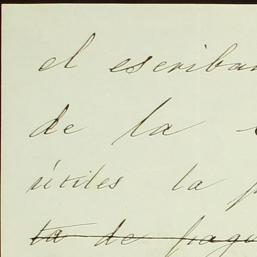 el escriban
de la
útiles la p
ta de fragu